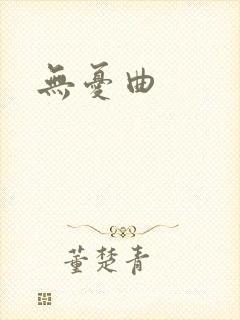 無憂曲
董楚青